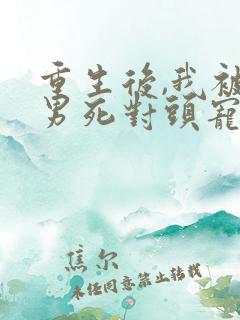 重生後,我被
男死對頭寵
焦尔
未经同意禁止转载